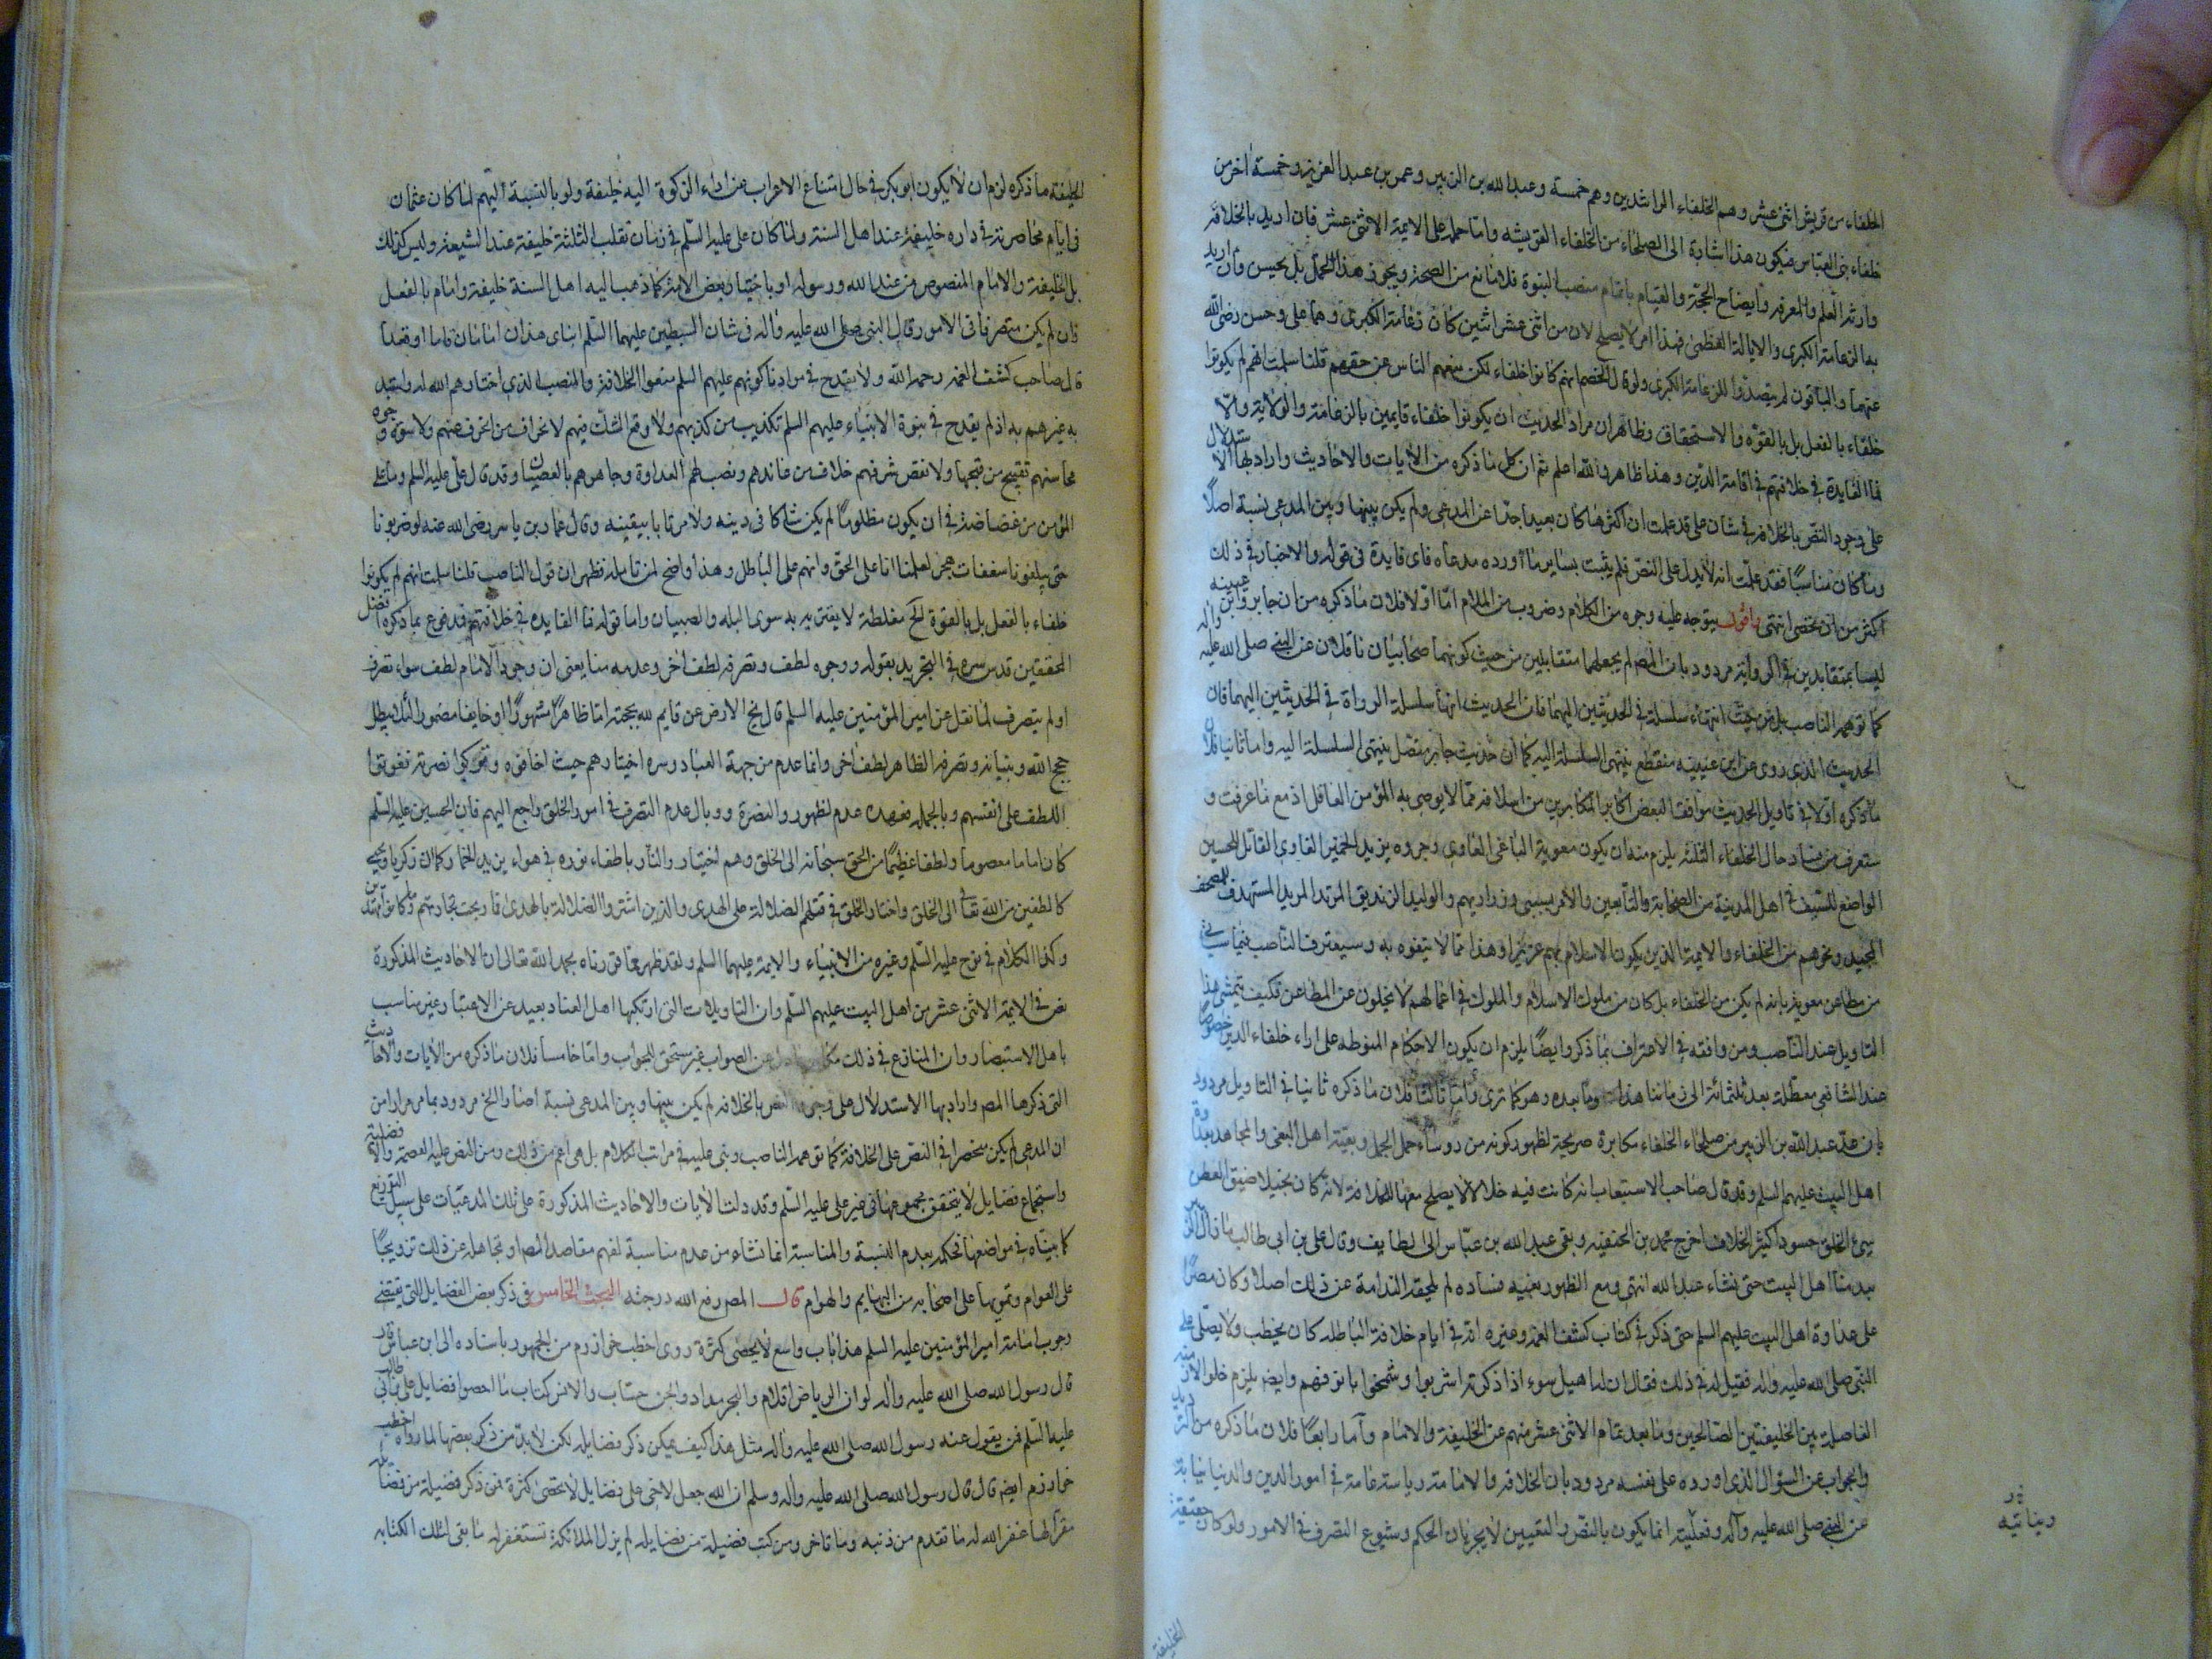 الخلفاء من قريش اثنى عشر وهم الخلفاء الراشدين وهم خمسة وعبدالله بن الزبير وعمر بن عبدالعزيز وخمسة اخر من
خلفاء بنى العباس فيكون هذا اشارة الى الصلحاء من الخلفاء القريشه واما حمله على الايمة الاثنى عشر فان اريد بالخلافة
وارثة العلم والمعرفة وايضاح الحجة والقيام باتمام منصب النبوة فلا مانع من الصحة ويجوز هذا المحمل بل يحسن وان اريد
به الزعامة الكبرى والايالة العظمى فهذا امر لا يصح لان من اثنى عشر اثنين كان زعامة الكبرى وهما على وحسن رضى الله
عنهما والباقون لم يتصدوا للزعامة الكبرى ولو قال الخصم انهم كانوا خلفاء لكن منعهم الناس عن حقهم قلنا سلمت انهم لم يكونوا
خلفاء بالفعل بل بالقوة والاستحقاق وظاهر ان مراد الحديث ان يكونوا خلفاء قايمين بالزعامة والولاية والا
فما الفايدة فى خلافتهم فى اقامة الدين وهذا ظاهر والله اعلم ثم ان كل ما ذكره من الايات والاحاديث واراد بها الاستدلال
على وجود النص بالخلافة فى شان على قد علمت ان اكثرها كان بعيدا جدا عن المدعى ولم يكن بينها وبين المدعى نسبة اصلا
وما كان مناسبا فقد علمت انه لا يدل على النص فلم يثبت بساير ما اورده مدعاه فاى فايدة فى قوله والاخبار فى ذلك
اكثر من ان تحصى انتهى واقول يتوجه عليه وجوه من الكلام وضروب من الملام اما اولا فلان ما ذكره من ان جابر وابن عيينه
ليسا بمتقابلين فى الرواية مردود بان المص لم يجعلهما متقابلين من حيث كونهما صحابيان ناقلان عن النبى صلى الله عليه واله
كما توهمه الناصب بل من حيث انتهاء سلسلة فى الحديثين اليهما فان الحديث انتها سلسلة الرواة فى الحديثين اليهما فان
الحديث الذى روى عن ابن عيينه منقطع ينتهى السلسلة اليه كما ان حديث جابر متصل ينتهى السلسلة اليه واما ثانيا فلان
ما ذكره اولا فى تاويل الحديث موافقا لبعض اكابر المكابرين من اسلافه فمما لا يرضى به المؤمن العاقل اذ مع ما عرفت و
ستعرف من فساد حال الخلفاء الثلثة يلزم منه ان يكون معوية الباغى الغاوى وجروه يزيد الخمير الغاوى القاتل للحسين
الواضع للسيف فى اهل المدينة من الصحابة والتابعين والامر بسبى وذراريهم والوليد الزنديق المرتد المريد المستهدف للمصحف
المجيد ونحوهم من الخلفاء والايمة الذين يكون الاسلام بهم عزيزا وهذا مما لا يتفوه به وسيعترف الناصب فيما سياتى
من مطاعن معوية بانه لم يكن من الخلفاء بل كان من ملوك الاسلام والملوك فى اعمالهم لا يخلون عن المطاعن فكيف يتمشى هذا
التاويل عند الناصب ومن وافقه فى الاعتراف بما ذكر وايضا يلزم ان يكون الاحكام المنوطة على اراء خلفاء الدين خصوصا
عند الشافعى معطلة بعد ثلثمائة الى زماننا هذا وما بعده وهو كما ترى واما ثالثا فلان ما ذكره ثانيا فى التاويل مردود
بان عد عبدالله بن الزبير من صلحاء الخلفاء مكابرة صريحة لظهور كونه من رؤساء حمل الجمل وبقية اهل البغى والمجاهد بعداوة
اهل البيت عليهم السلم وقد قال صاحب الاستيعاب انه كانت فيه خلال لا يصلح معها للخلافة لانه كان بخيلا ضيق العطن
سيئ الخلق حسودا كثير الخلاف اخرج محمد بن الحنفيه ونفى عبدالله بن عباس الى الطايف وقال على بن ابى طالب ما زال الزبير
يعد منا اهل البيت حتى نشاء عبدالله انتهى ومع الظهور بغيه فساده لم يلحقه الندامة عن ذلك اصلا وكان مصرا
على عداوة اهل البيت عليهم السلم حتى ذكر فى كتاب كشف الغمة وغيره انه فى ايام خلافة الباطلة كان يخطب ولا يصلى على
النبى صلى الله عليه واله فقيل له فى ذلك فقال ان له اهيل سوء اذا ذكرته اشرئبوا وشمخوا بانوفهم وايضا يلزم خلو الازمنه
الفاصلة بين الخليفتين الصالحين وما بعد تمام الاثنى عشر منهم عن الخليفة والامام واما رابعا فلان ما ذكره من الترديد
والجواب عن السؤال الذى اورده على نفسه مردود بان الخلافة والامامة رياسة عامة فى امور الدين والدنيا نيابة
عن النبى صلى الله عليه وآله وفعليته انما يكون بالنص والتعيين لا بجريان الحكم وشيوع التصرف فى الامور ولو كان حقيقة
الخليفة
الخليفة ما ذكره لزم ان لا يكون ابو بكر فى حال امتناع الاعراب عن اداء الزكوة اليه خليفة ولو بالنسبة اليهم لما كان عثمان
فى ايام محاصرته فى داره خليفة عند اهل السنة ولما كان على عليه السلم فى زمان تقلب الثلثة خليفة عند الشيعة وليس كذلك
بل الخليفة والامام المنصوص من عند الله ورسوله او باختيار بعض الامة كما ذهب اليه اهل السنة خليفة وامام بالفعل
وان لم يكن متصرفا فى الامور قال النبى صلى الله عليه واله فى شان السبطين عليهما السلم ابناى هذان امامان قاما او قعدا
قال صاحب كشف الغمة رحمه الله ولا يقدح فى مرادنا كونهم عليهم السلم منعوا الخلافة والمنصب الذى اختارهم الله له واستبد
به غيرهم به اذ لم يقدح فى نبوة الانبياء عليهم السلم تكذيب من كذبهم ولا وقع الشك فيهم لانحراف من انحرف عنهم ولا شوه وجوه
محاسنهم تقبيح من قبحها ولا نقص شرفهم خلاف من عاندهم ونصب لهم العداوة وجاهرهم بالعصيان وقد قال على عليه السلم وما على
المؤمن من غضاضة فى ان يكون مظلوما لم يكن شاكا فى دينه ولا مرتابا بيقينه وقال عمار بن ياسر رضى الله عنه لو ضربونا
حتى يبلغونا سعفات هجر لعلمنا انا على الحق وانهم على الباطل وهذا واضح لمن تامله فظهر ان قول الناصب قلنا سلمت انهم لم يكونوا
خلفاء بالفعل بل بالقوة الخ مغلطة لا يغتر به سوى البله والصبيان واما قوله فما الفايده فى خلافتهم فمدفوع بما ذكره افضل
المحققين قدس سره فى التجريد بقوله ووجوه لطف وتصرفه لطف اخر وعدمه منا يعنى ان وجود الامام لطف سواء تصرف
او لم يتصرف لما نقل عن امير المؤمنين عليه السلم قال لا يخ الارض عن قايم لله بحجته اما ظاهرا مشهورا او خايفا مضمورا لئلا يبطل
حجج الله وبيناته وتصرفه الظاهر لطف اخر وانما عدم من جهة العباد وسوء اختيارهم حيث اخافوه وتركوا نصرته ففوتوا
اللطف على انفسهم وبالجملة فعهدة عدم لظهور والنصرة ووبال عدم التصرف فى امور الخلق راجع اليهم فان الحسين عليه السلم
كان اماما معصوما ولطفا عظيما من الحق سبحانه الى الخلق وهم اختيار والنار باطفاء نوره فى هواء يزيد الخمار وكما ان زكريا ويحيى
كالطفين من الله تعالى الى الخلق واختار الخلق فى قتلهم الضلالة على الهدى والذين اشتروا الضلالة بالهدى فما ربحت تجارتهم وما كانوا مهتدين
وكذا الكلام فى نوح عليه السلم وغيره من الانبياء والايمة عليهما السلم ولقد ظهر مما قررناه بحمد الله تعالى ان الاحاديث المذكورة
نص فى الايمة الاثنى عشر من اهل البيت عليهم السلم وان التاويلات التى ارتكبها اهل العناد بعيد عن الاعتبار وغير مناسب
باهل الاستبصار وان المنازع فى ذلك عن الصواب غير مستحق للجواب واما خامسا فلان ما ذكره من الايات والاحاديث
التى ذكرها المص واراد بها الاستدلال على وجود النص بالخلافة لم يكن بينها وبين المدعى نسبة اصلا والخ مردود بما مر مرارا من
ان المدعى لم يكن منحصرا فى النص على الخلافة كما توهمه الناصب وبنى عليه فى مراتب الكلام بل هى اعم من ذلك ومن النص عليه العصمة والافضلية
واستجماع فضايل لا يتحقق مجموعها فى غير على عليه السلم وقد دلت الايات والاحاديث المذكورة على تلك المدعيات على سبيل التوزيع
كما بيناه فى مواضعها فتحكمه بعدم النسبة والمناسبة انما نشاء من عدم مناسبة لفهم مقاصد المص او تجاهله عن ذلك ترويجا
على العوام وتمويها على اصحابه من البهايم والهوام قال المص رفع الله درجته البحث الخامس فى ذكر بعض الفضايل التى يقتضى
وجوب امامة امير المؤمنين عليه السلم هذا باب واسع لا يحصى كثرة روى اخطب خوارزم من الجمهور باسناده الى ابن عباس قال
قال رسول الله صلى الله عليه واله لو ان الرياض اقلام والبحر مداد والجن حساب والانس كتاب ما احصوا فضايل على بن ابى طالب
عليه السلم فمن يقول عنه رسول الله صلى الله عليه واله مثل هذا كيف يمكن ذكر فضايله لكن لابد من ذكر بعضها لما رواه اخطب
خوارزم ايضا قال قال رسول الله صلى الله عليه واله وسلم ان الله جعل لاخى على فضايل لا تحصى كثرة فمن ذكر فضيلة من فضايله
مقرا بها غفر الله له ما تقدم من ذنبه وما تاخر ومن كتب فضيلة من فضايله لم يزل الملائكة تستغفر له ما بقى لتلك الكتابه